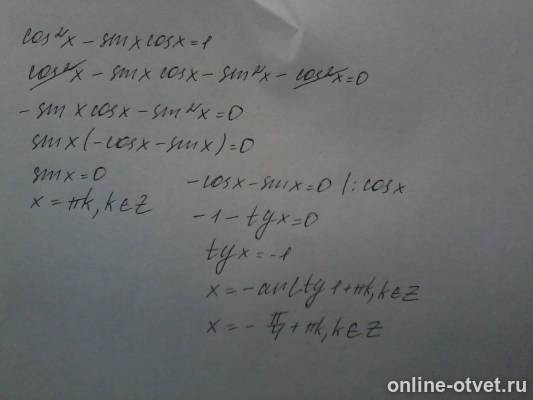 cos²x - sinx cosx = 1
cos²x - sinx cosx - sin²x - cos²x = 0
- sinx cosx - sin²x = 0
sinx(-cosx - sinx) = 0
sinx = 0
x = πk, k ∈ Z
-cosx - sinx = 0 |: cosx
-1 - tgx = 0
tgx = -1
x = -arctg 1 + πk, k ∈ Z
x = - π/4 + πk, k ∈ Z
online-otvet.ru